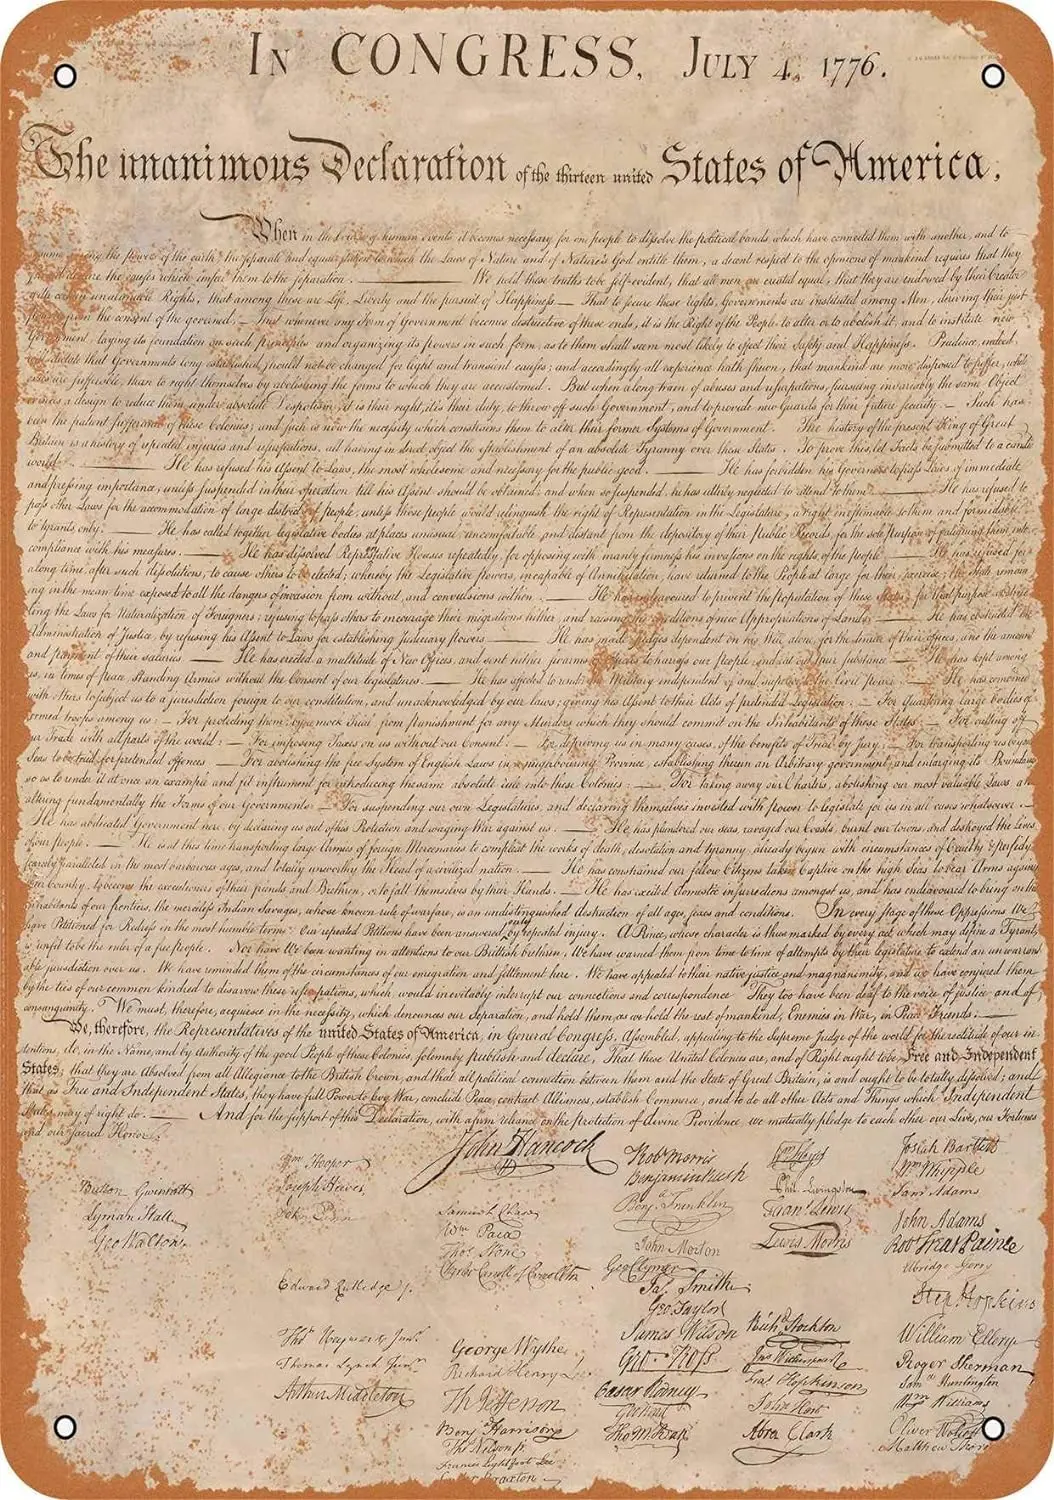 In CONGRESS, July 4, 1776.
The unanimous Declaration of the thirteen united States of America,
When in the Course of human events it becomes necessary for one people to dissolve the political bands which have connected them with another, and to
among the powers of the earth, the separate and equal station to which the Laws of Nature and of Nature's God entitle them, a decent respect to the opinions of mankind requires that they
should declare the causes which impel them to the separation. — We hold these truths to be self-evident, that all men are created equal, that they are endowed by their Creator
with certain unalienable Rights, that among these are Life, Liberty and the pursuit of Happiness.— That to secure these rights, Governments are instituted among Men, deriving their just
powers from the consent of the governed,— That whenever any Form of Government becomes destructive of these ends, it is the Right of the People to alter or to abolish it, and to institute new
Government, laying its foundation on such principles and organizing its powers in such form, as to them shall seem most likely to effect their Safety and Happiness. Prudence, indeed,
will dictate that Governments long established should not be changed for light and transient causes; and accordingly all experience hath shewn, that mankind are more disposed to suffer, while
evils are sufferable, than to right themselves by abolishing the forms to which they are accustomed. But when a long train of abuses and usurpations, pursuing invariably the same Object
evinces a design to reduce them under absolute Despotism, it is their right, it is their duty, to throw off such Government, and to provide new Guards for their future security.— Such has
been the patient sufferance of these Colonies; and such is now the necessity which constrains them to alter their former Systems of Government. The history of the present King of Great
Britain is a history of repeated injuries and usurpations, all having in direct object the establishment of an absolute Tyranny over these States. To prove this, let Facts be submitted to a candid
world. — He has refused his Assent to Laws, the most wholesome and necessary for the public good. — He has forbidden his Governors to pass Laws of immediate
and pressing importance, unless suspended in their operation till his Assent should be obtained; and when so suspended, he has utterly neglected to attend to them. — He has refused to
pass other Laws for the accommodation of large districts of people, unless those people would relinquish the right of Representation in the Legislature, a right inestimable to them and formidable
to tyrants only. — He has called together legislative bodies at places unusual, uncomfortable, and distant from the depository of their Public Records, for the sole purpose of fatiguing them into
compliance with his measures. — He has dissolved Representative Houses repeatedly, for opposing with manly firmness his invasions on the rights of the people. — He has refused for
a long time, after such dissolutions, to cause others to be elected; whereby the Legislative powers, incapable of Annihilation, have returned to the People at large for their exercise; the State remain
ing in the mean time exposed to all the dangers of invasion from without, and convulsions within. — He has endeavoured to prevent the population of these States; for that purpose obstruc
ting the Laws for Naturalization of Foreigners; refusing to pass others to encourage their migrations hither, and raising the conditions of new Appropriations of Lands. — He has obstructed the
Administration of Justice, by refusing his Assent to Laws for establishing Judiciary powers. — He has made Judges dependent on his Will alone, for the tenure of their offices, and the amount
and payment of their salaries. — He has erected a multitude of New Offices, and sent hither swarms of Officers to harrass our people, and eat out their substance. — He has kept among
us, in times of peace, Standing Armies without the Consent of our legislatures. — He has affected to render the Military independent of and superior to the Civil power. — He has combined
with others to subject us to a jurisdiction foreign to our constitution, and unacknowledged by our laws; giving his Assent to their Acts of pretended Legislation: — For Quartering large bodies of
armed troops among us: — For protecting them, by a mock Trial, from punishment for any Murders which they should commit on the Inhabitants of these States: — For cutting off
our Trade with all parts of the world: — For imposing Taxes on us without our Consent: — For depriving us in many cases, of the benefits of Trial by Jury: — For transporting us beyond
Seas to be tried for pretended offences — For abolishing the free System of English Laws in a neighbouring Province, establishing therein an Arbitrary government, and enlarging its Boundaries
so as to render it at once an example and fit instrument for introducing the same absolute rule into these Colonies: — For taking away our Charters, abolishing our most valuable Laws and
altering fundamentally the Forms of our Governments: — For suspending our own Legislatures, and declaring themselves invested with power to legislate for us in all cases whatsoever. —
He has abdicated Government here, by declaring us out of his Protection and waging War against us. — He has plundered our seas, ravaged our Coasts, burnt our towns, and destroyed the Lives
of our people. — He is at this time transporting large Armies of foreign Mercenaries to compleat the works of death, desolation and tyranny, already begun with circumstances of Cruelty & perfidy
scarcely paralleled in the most barbarous ages, and totally unworthy the Head of a civilized nation. — He has constrained our fellow Citizens taken Captive on the high Seas to bear Arms against
their Country, to become the executioners of their friends and Brethren, or to fall themselves by their Hands. — He has excited domestic insurrections amongst us, and has endeavoured to bring on the
inhabitants of our frontiers, the merciless Indian Savages, whose known rule of warfare, is an undistinguished destruction of all ages, sexes and conditions. In every stage of these Oppressions We
have Petitioned for Redress in the most humble terms: Our repeated Petitions have been answered only by repeated injury. A Prince, whose character is thus marked by every act which may define a Tyrant,
is unfit to be the ruler of a free people. Nor have We been wanting in attentions to our Brittish brethren. We have warned them from time to time of attempts by their legislature to extend an unwarrant
able jurisdiction over us. We have reminded them of the circumstances of our emigration and settlement here. We have appealed to their native justice and magnanimity, and we have conjured them
by the ties of our common kindred to disavow these usurpations, which, would inevitably interrupt our connections and correspondence. They too have been deaf to the voice of justice and of
consanguinity. We must, therefore, acquiesce in the necessity, which denounces our Separation, and hold them, as we hold the rest of mankind, Enemies in War, in Peace Friends. —
We, therefore, the Representatives of the united States of America, in General Congress, Assembled, appealing to the Supreme Judge of the world for the rectitude of our in
tentions, do, in the Name, and by authority of the good People of these Colonies, solemnly publish and declare, That these United Colonies are, and of Right ought to be Free and Independent
States; that they are Absolved from all Allegiance to the British Crown, and that all political connection between them and the State of Great Britain, is and ought to be totally dissolved; and
that as Free and Independent States, they have full Power to levy War, conclude Peace, contract Alliances, establish Commerce, and to do all other Acts and Things which Independent
States may of right do. — And for the support of this Declaration, with a firm reliance on the protection of divine Providence, we mutually pledge to each other our Lives, our Fortunes
and our sacred Honor.
Button Gwinnett
Lyman Hall
Geo Walton.
Wm Hooper
Joseph Hewes,
John Penn
Edward Rutledge /.
Thos Heyward Junr.
Thomas Lynch Junr.
Arthur Middleton
John Hancock
Samuel Chase
Wm. Paca
Thos. Stone
Charles Carroll of Carrollton
George Wythe
Richard Henry Lee
Th Jefferson
Benj Harrison
Thos Nelson jr.
Francis Lightfoot Lee
Carter Braxton
Robt Morris
Benjamin Rush
Benj. Franklin
John Morton
Geo Clymer
Jas. Smith
Geo. Taylor
James Wilson
Geo. Ross
Caesar Rodney
Geo Read
Tho M:Kean
Wm Floyd
Phil. Livingston
Frans. Lewis
Lewis Morris
Richd. Stockton
Jno Witherspoon
Fras. Hopkinson
John Hart
Abra Clark
Josiah Bartlett
Wm Whipple
Saml Adams
John Adams
Robt Treat Paine
Elbridge Gerry
Step. Hopkins
William Ellery
Roger Sherman
Saml Huntington
Wm Williams
Oliver Wolcott
Matthew Thornton